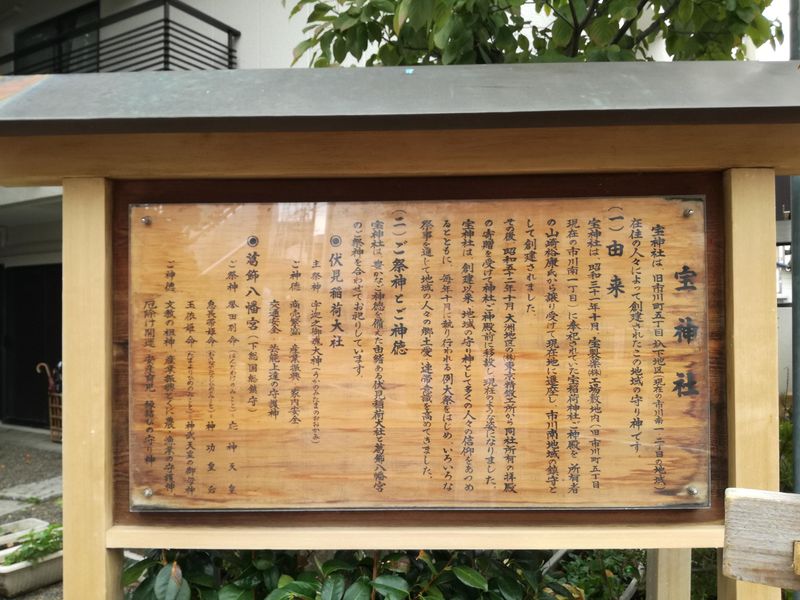 宝神社
宝神社は、旧市川町五丁目圦下地区(現在の市川南一、二丁目の地域)
在住の人々によって創建されたこの地域の守り神です。
(一)由来
宝神社は、昭和三十一年十月、宝製薬㈱工場敷地内(旧市川町五丁目
現在の市川南一丁目)に奉祀されていた宝稲荷神社ご神殿を、所有者
の山崎裕康氏から譲り受けて、現在地に遷座し、市川南地域の鎮守と
して創建されました。
その後、昭和五十二年十月、大洲地区の㈱東京精鍛工所から同社所有の拝殿
の寄贈を受けて神社ご神殿前に移設し、現在のような姿になりました。
宝神社は、創建以来、地域の守り神として多くの人々の信仰をあつめ
るとともに、毎年十月に執り行われる例大祭をはじめ、いろいろな
祭事を通して地域の人々の郷土愛、連帯意識を高めてきました。
(二)ご祭神とご神徳
宝神社は、豊かなご神徳を備えた由緒ある伏見稲荷大社と葛飾八幡宮
のご祭神を合わせてお祀りしています。
◉伏見稲荷大社
主祭神 宇迦之御魂大神(うかのみたまのおおかみ)
ご神徳 商売繁盛 産業振興 家内安全
交通安全 芸能上達の守護神
◉葛飾八幡宮(下総国総鎮守)
ご祭神 誉田別命(ほんだわけのみこと) 応神天皇
息長帯姫命(おきながたらしひめのみこと) 神功皇后
玉依姫命(たまよりひめのみこと) 神武天皇の御母神
ご神徳 文教の祖神 産業振興とくに農、漁業の守護神
厄除け開運 安産育児 縁結びの守り神